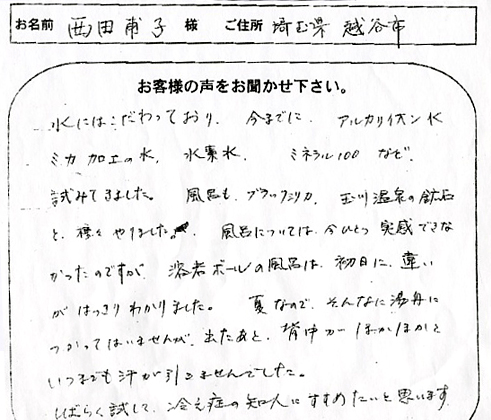 お名前 西田甫子 様 ご住所 埼玉県 越谷市
お客様の声をお聞かせ下さい。
水にはこだわっており、今までに、アルカリイオン水
ミカ加工の水、水素水、ミネラル100 など、
試みてきました。風呂も、ブラックシリカ、玉川温泉の鉱石
と、種々やりました。風呂については、今ひとつ実感できな
かったのですが、容者ボールの風呂は、初日に、違い
がはっきりわかりました。夏なので、そんなに湯舟に
つかってはいませんが、出たあと、背中がほかほかと
いつまでも汗が引きませんでした。
しばらく試して、冷え症の知人にすすめたいと思います